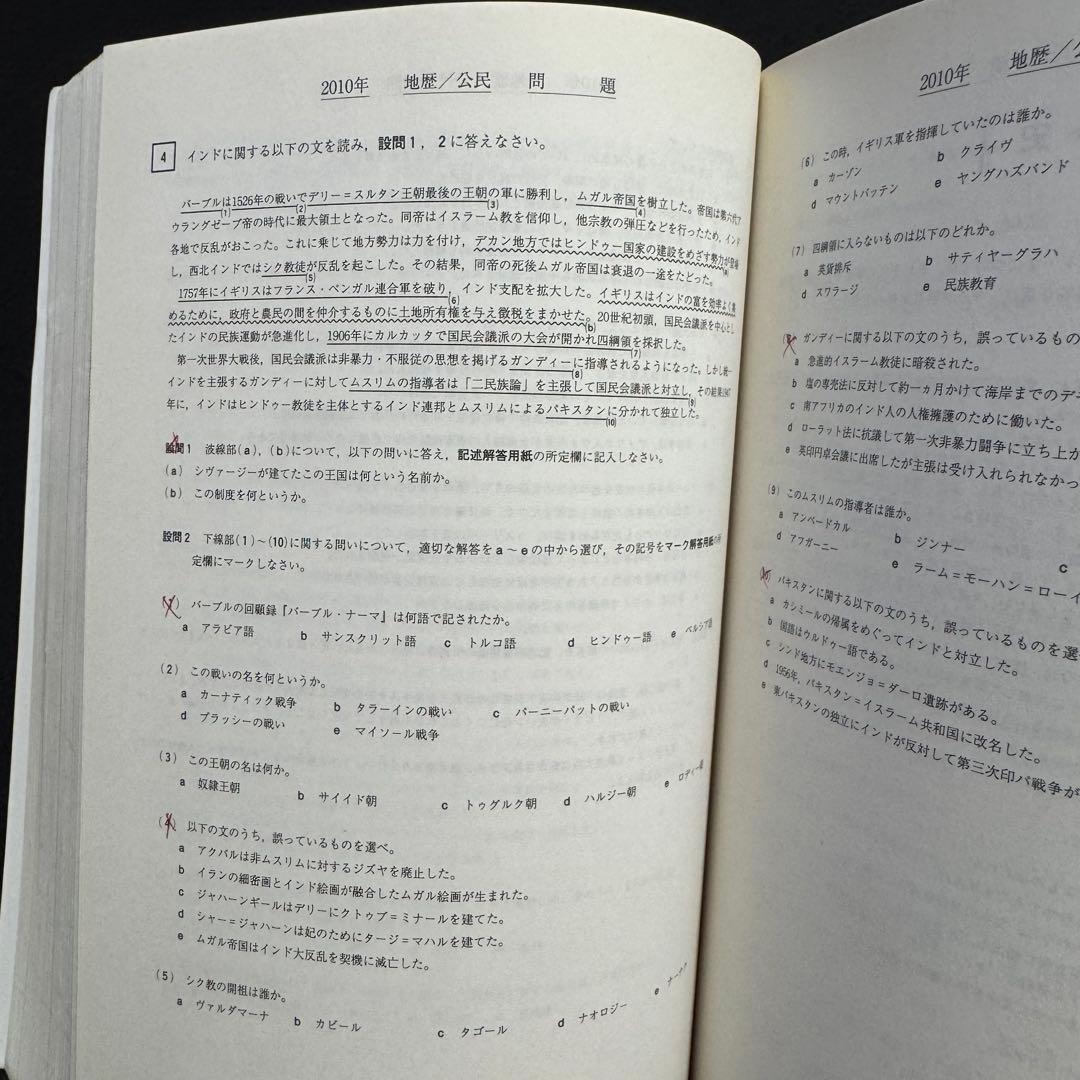 2010年 地歴／公民 問 題
4 インドに関する以下の文を読み，設問1，2に答えなさい。
バーブルは1526年の戦いでデリー＝スルタン王朝最後の王朝の軍に勝利し，ムガル帝国を樹立した。帝国は第六代ア
(1) (2) (3) (4)
ウラングゼーブ帝の時代に最大領土となった。同帝はイスラーム教を信仰し，他宗教の弾圧などを行ったため，インド
各地で反乱がおこった。これに乗じて地方勢力は力を付け，デカン地方ではヒンドゥー国家の建設をめざす勢力が登場
(a)
し，西北インドではシク教徒が反乱を起こした。その結果，同帝の死後ムガル帝国は衰退の一途をたどった。
(5)
1757年にイギリスはフランス・ベンガル連合軍を破り，インド支配を拡大した。イギリスはインドの富を効率よく集
(6)
めるために，政府と農民の間を仲介するものに土地所有権を与え徴税をまかせた。20世紀初頭，国民会議派を中心とし
(b)
たインドの民族運動が急進化し，1906年にカルカッタで国民会議派の大会が開かれ四綱領を採択した。
(7)
第一次世界大戦後，国民会議派は非暴力・不服従の思想を掲げるガンディーに指導されるようになった。しかし統一
(8)
インドを主張するガンディーに対してムスリムの指導者は「二民族論」を主張して国民会議派と対立し，その結果1947
(9)
年に，インドはヒンドゥー教徒を主体とするインド連邦とムスリムによるパキスタンに分かれて独立した。
(10)
設問1 波線部(a)，(b)について，以下の問いに答え，記述解答用紙の所定欄に記入しなさい。
(a) シヴァージーが建てたこの王国は何という名前か。
(b) この制度を何というか。
設問2 下線部(1)～(10)に関する問いについて，適切な解答をa～eの中から選び，その記号をマーク解答用紙の所
定欄にマークしなさい。
(1) バーブルの回顧録『バーブル・ナーマ』は何語で記されたか。
a アラビア語 b サンスクリット語 c トルコ語 d ヒンドゥー語 e ペルシア語
(2) この戦いの名を何というか。
a カーナティック戦争 b タラーインの戦い c パーニーパットの戦い
d プラッシーの戦い e マイソール戦争
(3) この王朝の名は何か。
a 奴隷王朝 b サイイド朝 c トゥグルク朝 d ハルジー朝 e ロディー朝
(4) 以下の文のうち，誤っているものを選べ。
a アクバルは非ムスリムに対するジズヤを廃止した。
b イランの細密画とインド絵画が融合したムガル絵画が生まれた。
c ジャハーンギールはデリーにクトゥブ＝ミナールを建てた。
d シャー＝ジャハーンは妃のためにタージ＝マハルを建てた。
e ムガル帝国はインド大反乱を契機に滅亡した。
(5) シク教の開祖は誰か。
a ヴァルダマーナ b カビール c タゴール d ナオロジー e ナーナク
2010年 地歴／公
(6) この時，イギリス軍を指揮していたのは誰か。
a カーゾン b クライヴ
d マウントバッテン e ヤングハズバンド
(7) 四綱領に入らないものは以下のどれか。
a 英貨排斥 b サティヤーグラハ
d スワラージ e 民族教育
(8) ガンディーに関する以下の文のうち，誤っているもの
a 急進的イスラーム教徒に暗殺された。
b 塩の専売法に反対して約一ヵ月かけて海岸までのデ
c 南アフリカのインド人の人権擁護のために働いた。
d ローラット法に抗議して第一次非暴力闘争に立ち上が
e 英印円卓会議に出席したが主張は受け入れられなかっ
(9) このムスリムの指導者は誰か。
a アンベードカル b ジンナー c
d アフガーニー e ラーム＝モーハン＝ローイ
(10) パキスタンに関する以下の文のうち，誤っているものを選
a カシミールの帰属をめぐってインドと対立した。
b 国語はウルドゥー語である。
c シンド地方にモエンジョ＝ダーロ遺跡がある。
d 1956年，パキスタン＝イスラーム共和国に改名した。
e 東パキスタンの独立にインドが反対して第三次印パ戦争が